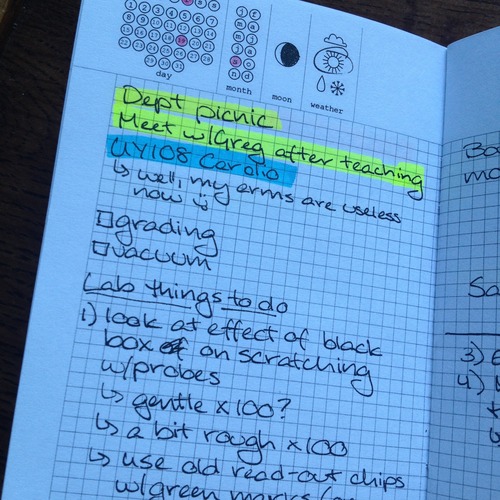 day
month
moon
weather
Dept picnic
Meet w/Greg after teaching
UY108 Cardio
↳ well, my arms are useless
now
grading
vacuum
Lab things to do
1) look at effect of black
box on scratching
w/probes
↳ gentle x100?
↳ a bit rough x100
↳ use old read-out chips
w/green marks
3)
4)